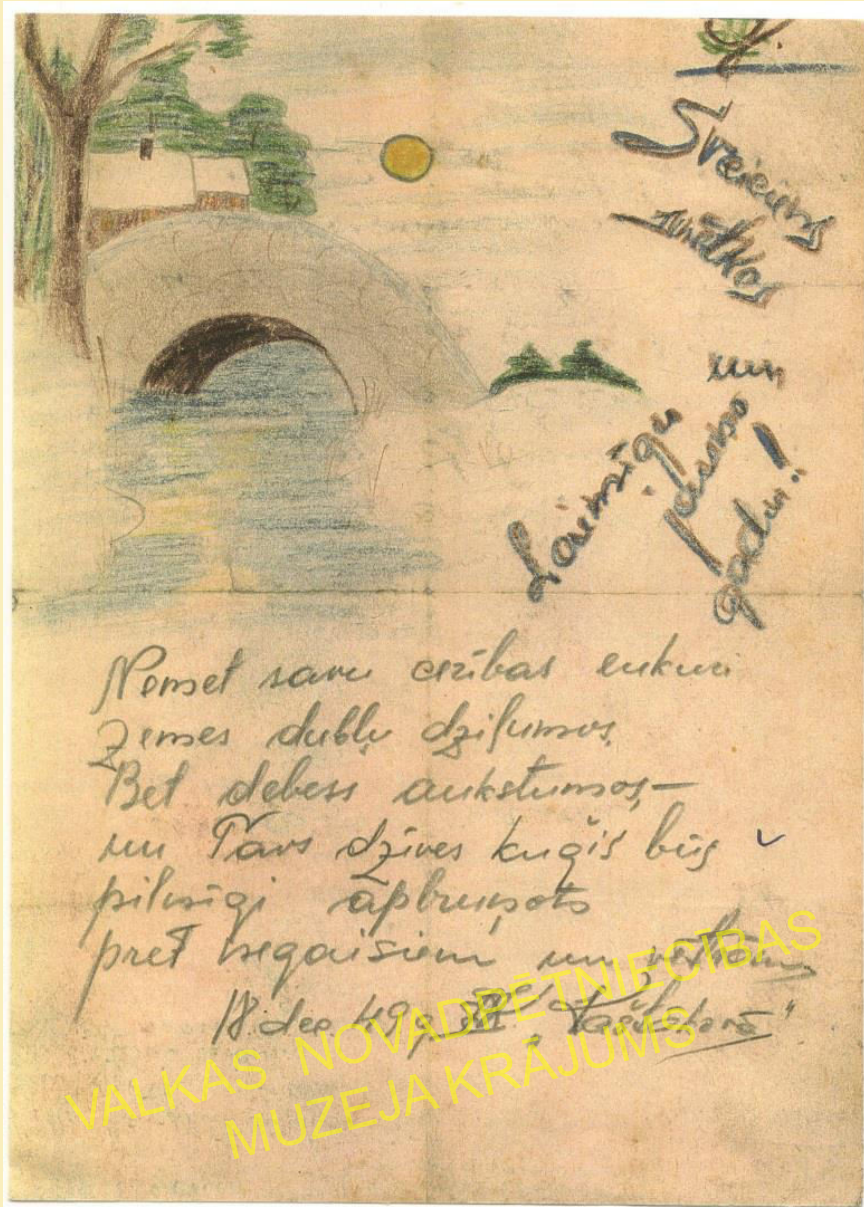 Sveiciens
svētkos
un
Laimīgu
jauno
gadu!
Nemet savu cerības enkuri
Zemes dubļu dziļumos,
Bet debess aukstumos, –
un Tavs dzīves kuģis būs
pilnīgi apbruņots
pret negaisiem un vētrām
18. dec 49 g.
VALKAS NOVADPĒTNIECĪBAS
MUZEJA KRĀJUMS